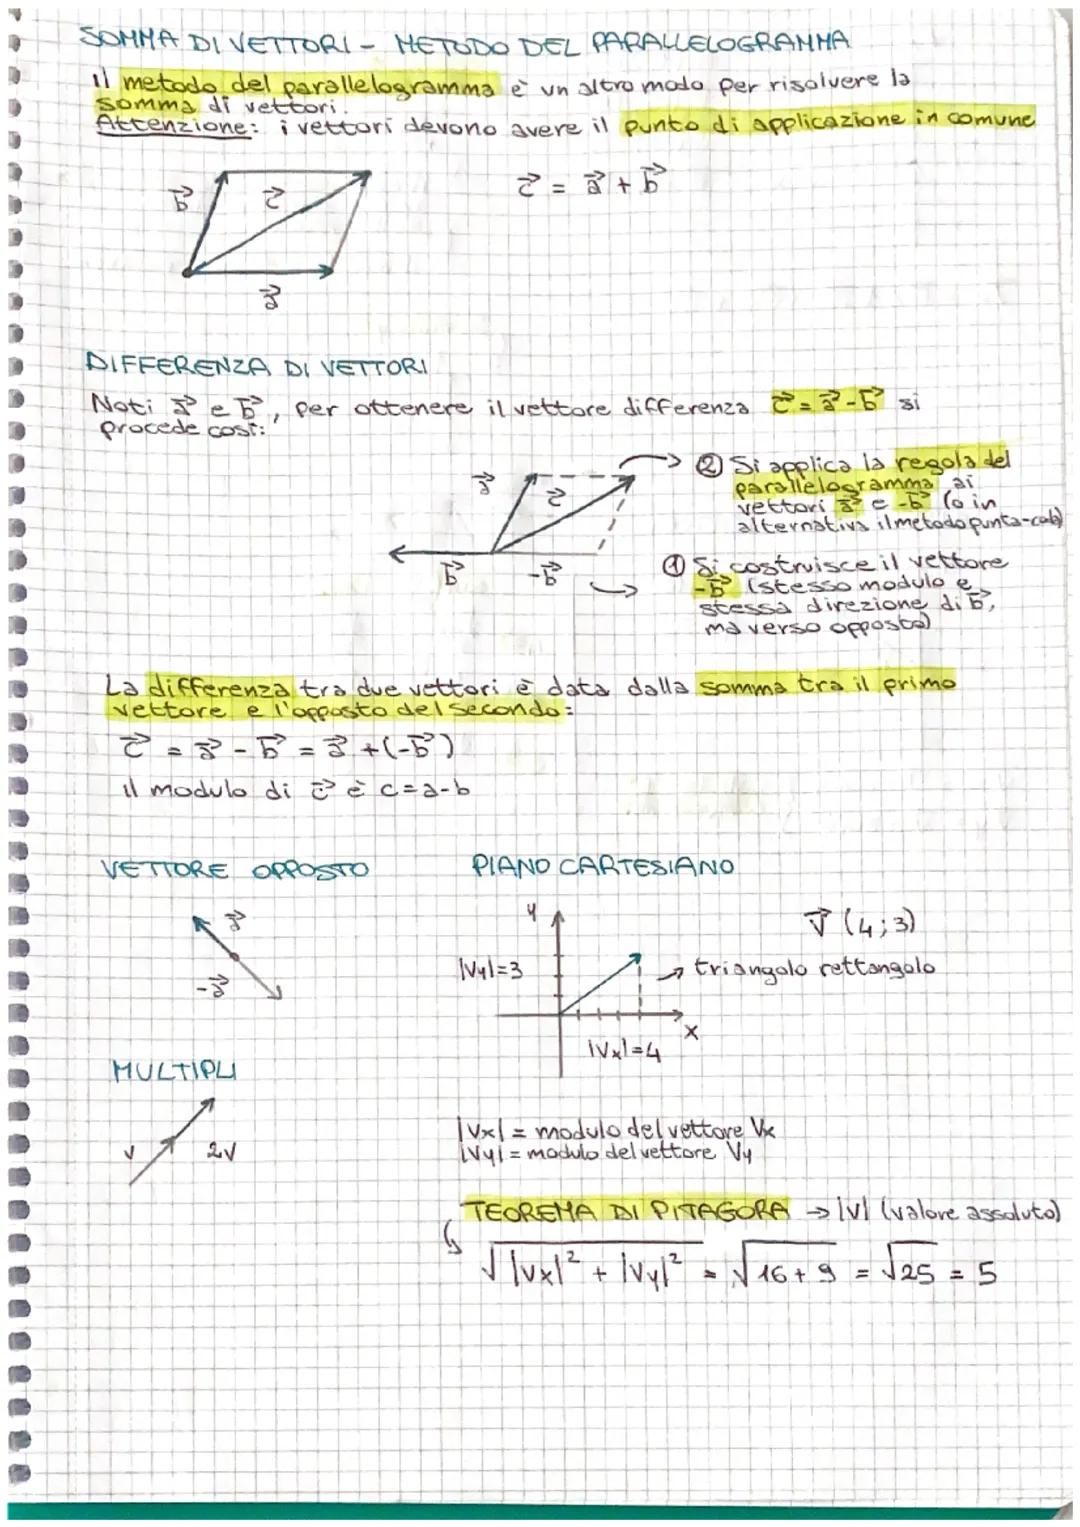 SOMMA DI VETTORI - METODO DEL PARALLELOGRAMMA
il metodo del parallelogramma è un altro modo per risolvere la
somma di vettori.
Attenzione: i vettori devono avere il punto di applicazione in comune
b⃗
c⃗
a⃗
c⃗ = a⃗ + b⃗
DIFFERENZA DI VETTORI
Noti a⃗ e b⃗, per ottenere il vettore differenza c⃗ = a⃗ - b⃗ si
procede così:
a⃗
c⃗
b⃗
-b⃗
② Si applica la regola del
parallelogramma ai
vettori a⃗ e -b⃗ (o in
alternativa il metodo punta-coda)
① Si costruisce il vettore
-b⃗ (stesso modulo e
stessa direzione di b⃗,
ma verso opposto)
La differenza tra due vettori è data dalla somma tra il primo
vettore e l'opposto del secondo:
c⃗ = a⃗ - b⃗ = a⃗ + (-b⃗)
il modulo di c⃗ è c=a-b
VETTORE OPPOSTO
a⃗
-a⃗
PIANO CARTESIANO
y
v⃗ (4;3)
|Vy|=3
triangolo rettangolo
x
|Vx|=4
MULTIPLI
v
2v
|Vx| = modulo del vettore Vx
|Vy| = modulo del vettore Vy
TEOREMA DI PITAGORA → |v| (valore assoluto)
↳ √|Vx|² + |Vy|² = √16+9 = √25 = 5